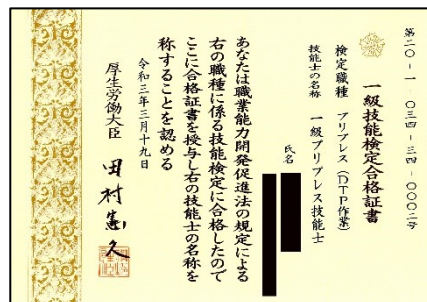 第二〇-一-〇三四-三四-〇〇〇二号
一級技能検定合格証書
検定職種 プリプレス(DTP作業)
技能士の名称 一級プリプレス技能士
氏名
あなたは職業能力開発促進法の規定による
右の職種に係る技能検定に合格したので
ここに合格証書を授与し右の技能士の名称を
称することを認める
令和三年三月十九日
厚生労働大臣 田村憲久